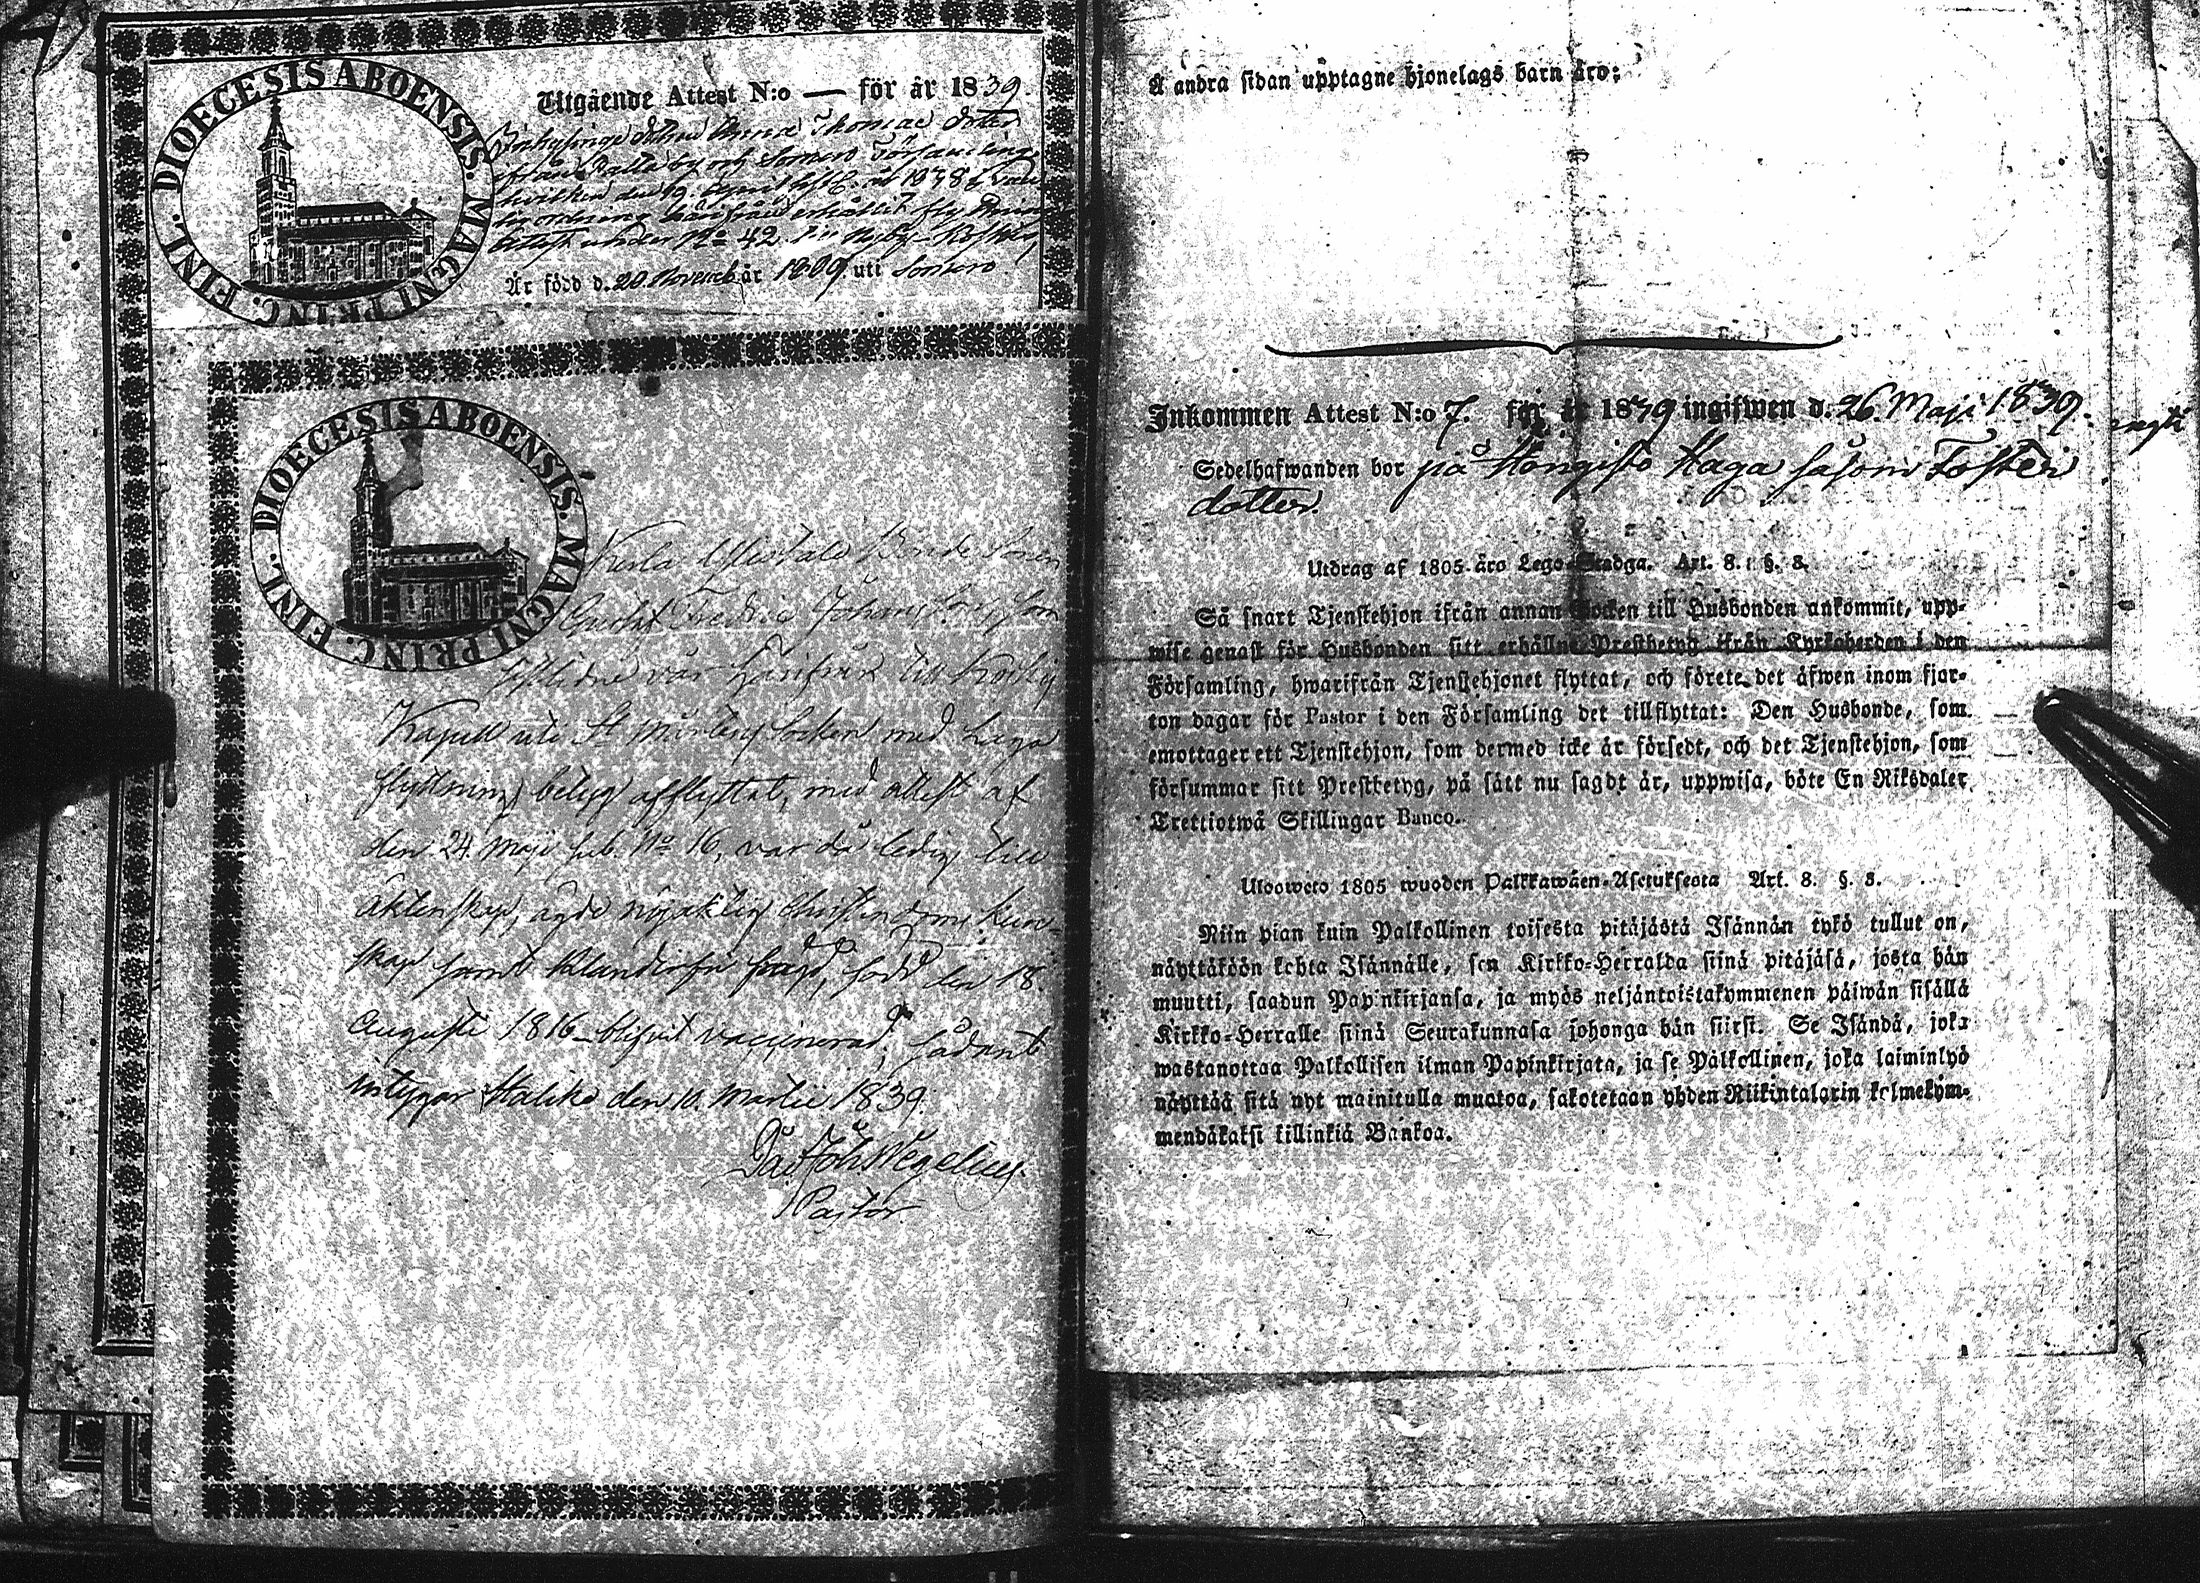 DIOECESIS ABOENSIS. MAGNI PRINC. FINL.
Utgående Attest N:o — för år 1839.
Anna Thomae dotter
ifrån by och Somero Församling
hvilken den 19. April år 1838
för ordning härifrån erhållit
under No 42
Är född d. 20. Novemb. år 1809 uti Somero
DIOECESIS ABOENSIS. MAGNI PRINC. FINL.
Bonde Sonen
Gustaf Fredric Johansson, som
sistlidne vår härifrån till
Kapell uti St Mårtens Socken med Laga
flyttnings betyg afflyttat, med attest af
den 24. Maji sub. No 16, var då ledig till
Äktenskap, ägde nöjaktig Christendoms kun-
skap samt frägd, född den 18.
Augusti 1816 blifvit vaccinerad, sådant
intygar Haliko den 10. Martii 1839.
Joh. Wegelius
Pastor.
Å andra sidan upptagne hjonelags barn äro:
Inkommen Attest N:o 7. för år 1839 ingifwen d. 26 Maji 1839.
Sedelhafwanden bor på Hongisto Haga såsom Foster
dotter.
Utdrag af 1805 års Lego-Stadga. Art. 8. §. 8.
Så snart Tjenstehjon ifrån annan Socken till Husbonden ankommit, upp-
wise genast för Husbonden sitt erhållne Prestbetyg ifrån Kyrkoherden i den
Församling, hwarifrån Tjenstehjonet flyttat, och förete det äfwen inom fjor-
ton dagar för Pastor i den Församling det tillflyttat: Den Husbonde, som
emottager ett Tjenstehjon, som dermed icke är försedt, och det Tjenstehjon, som
försummar sitt Prestbetyg, på sätt nu sagdt är, uppwisa, böte En Riksdaler
Trettiotwå Skillingar Banco.
Ulosweto 1805 wuoden Palkkawäen-Asetuksesta Art. 8. §. 8.
Niin pian kuin Palkollinen toisesta pitäjästä Isännän tykö tullut on,
näyttäköön kohta Isännälle, sen Kirkko-Herralda siinä pitäjäsä, josta hän
muutti, saadun Papinkirjansa, ja myös neljäntoistakymmenen päiwän sisällä
Kirkko-Herralle siinä Seurakunnasa johonga hän siirsi. Se Isändä, joka
wastanottaa Palkollisen ilman Papinkirjata, ja se Palkollinen, joka laiminlyö
näyttää sitä nyt mainitulla muotoa, sakotetaan yhden Riikintalarin kolmekym-
mendäkaksi killinkiä Bankoa.